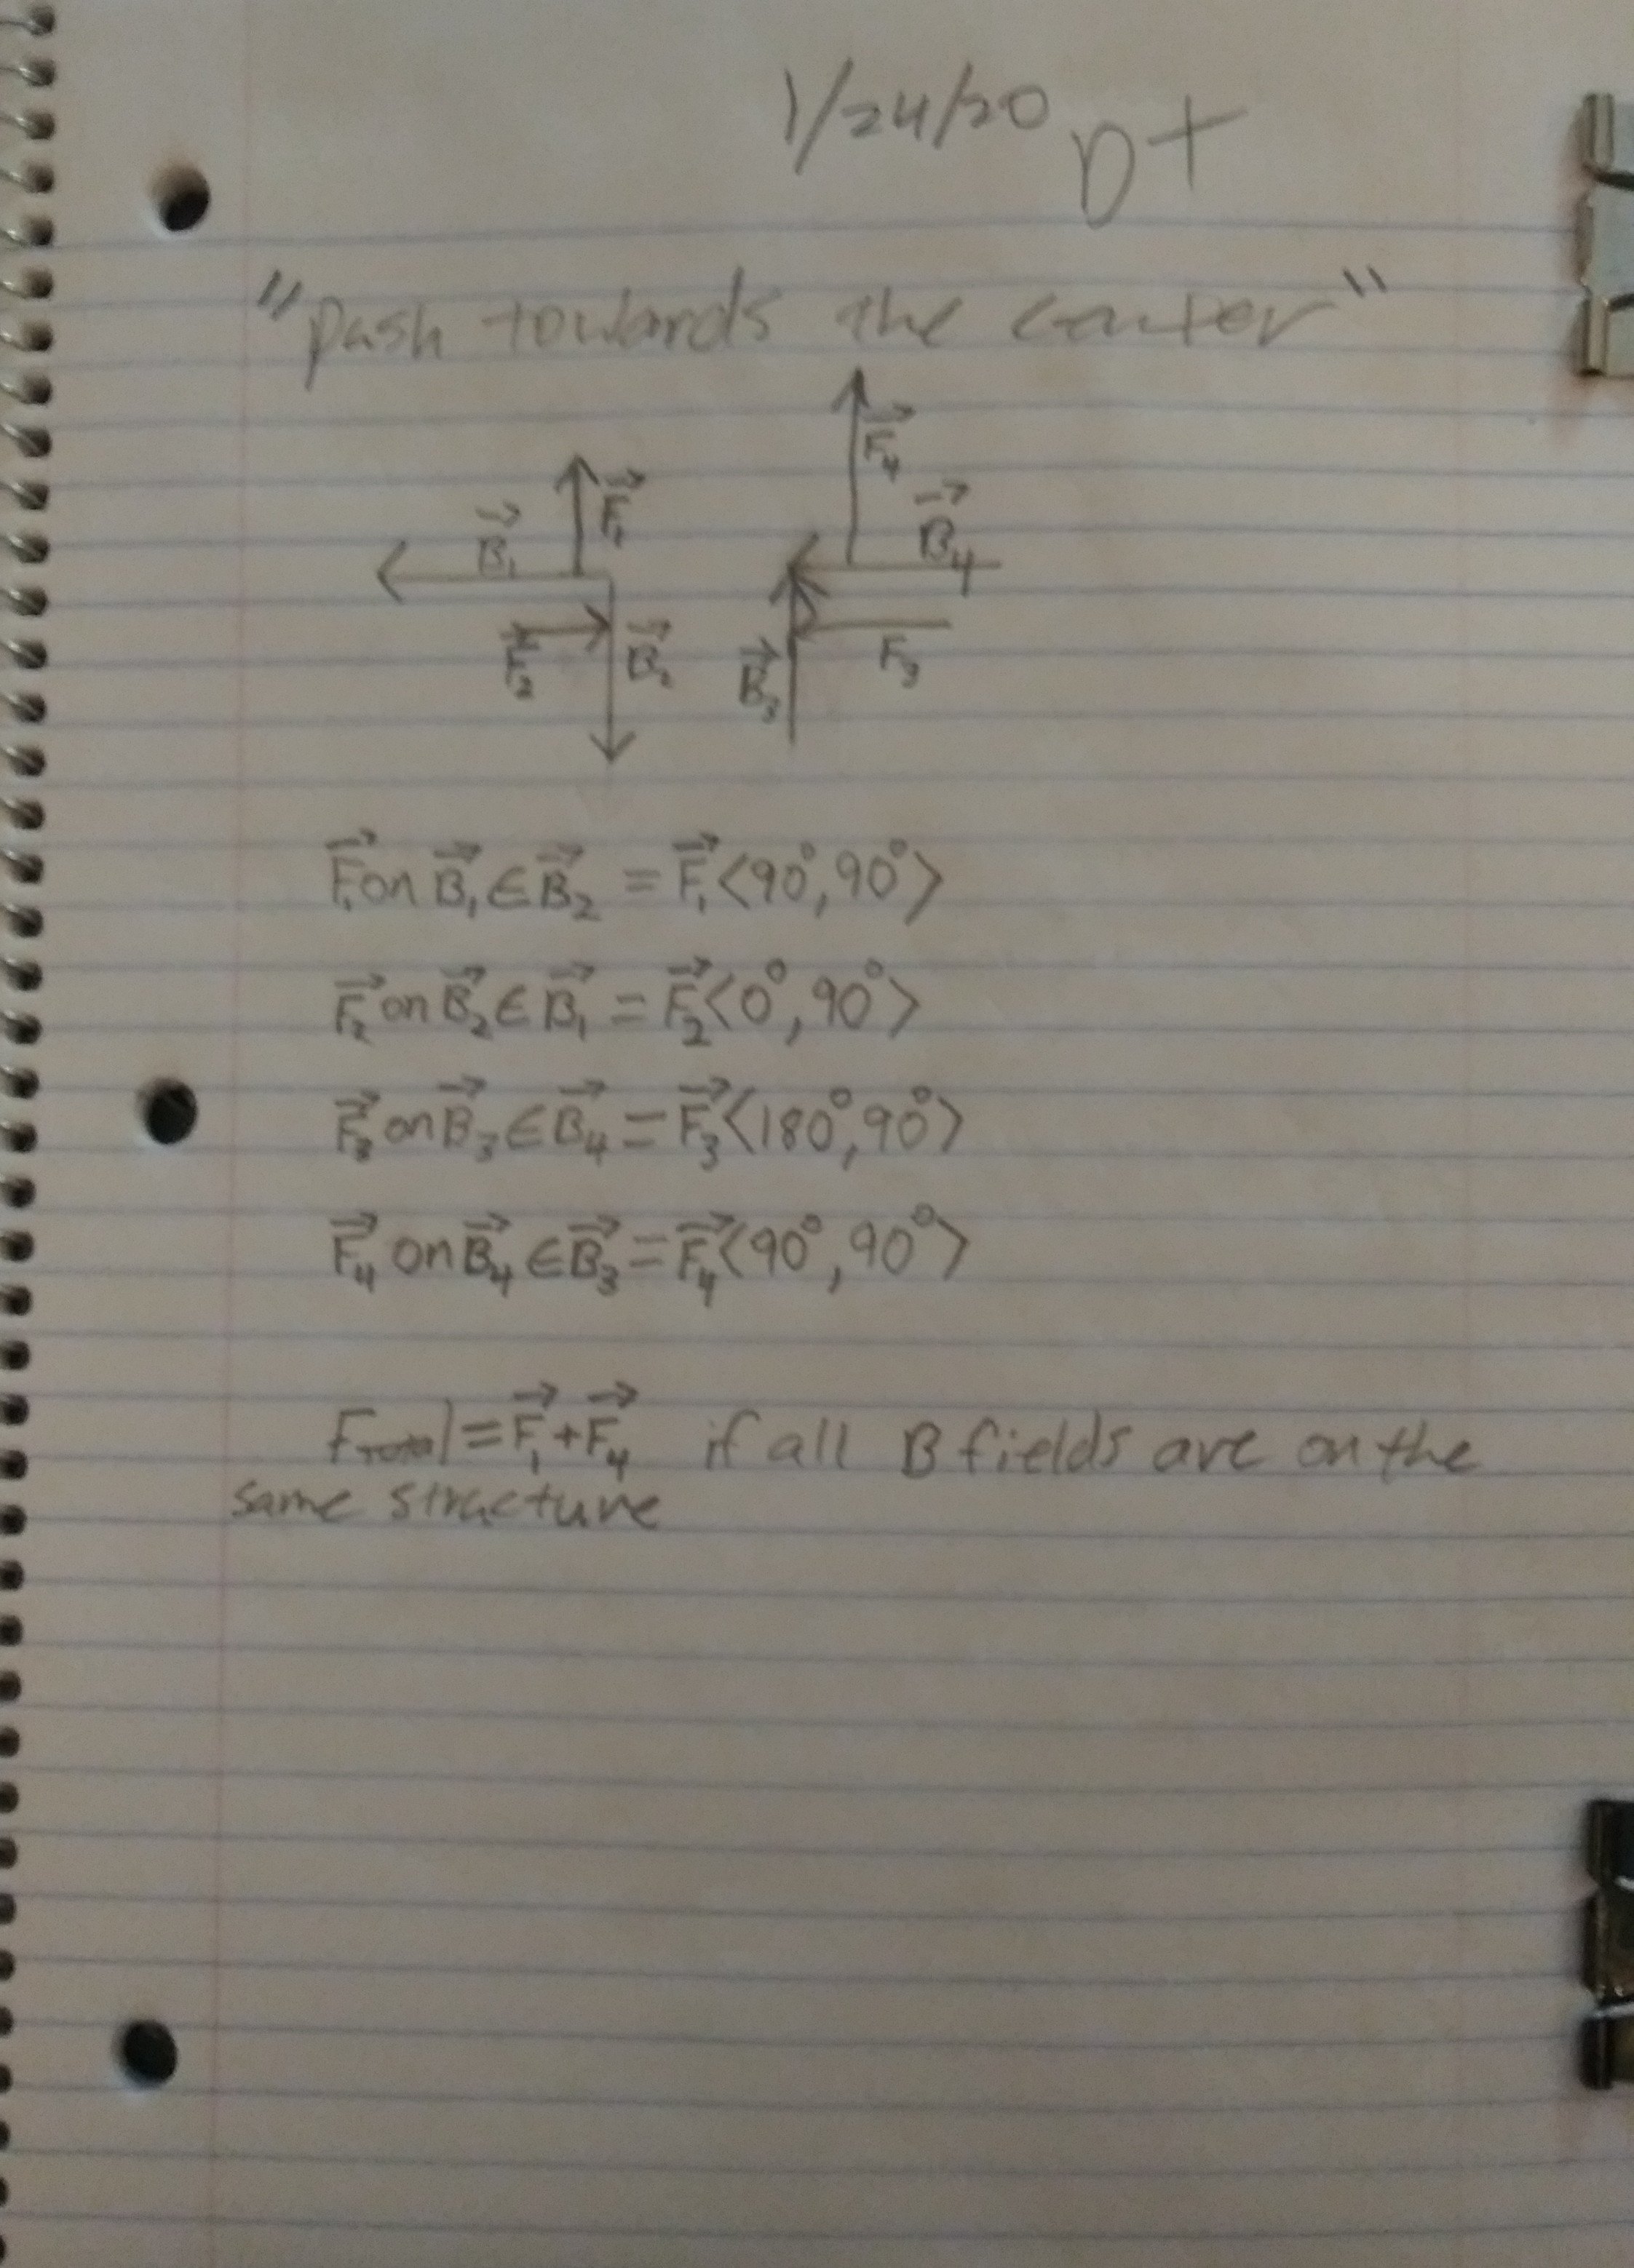 1/24/20 DT
"Push towards the center"
F⃗₄
F⃗₁
B⃗₁
B⃗₄
F⃗₂
B⃗₂
B⃗₃
F₃
F⃗₁ on B⃗₁ ∈ B⃗₂ = F⃗₁⟨90°, 90°⟩
F⃗₂ on B⃗₂ ∈ B⃗₁ = F⃗₂⟨0°, 90°⟩
F⃗₃ on B⃗₃ ∈ B⃗₄ = F⃗₃⟨180°, 90°⟩
F⃗₄ on B⃗₄ ∈ B⃗₃ = F⃗₄⟨90°, 90°⟩
Ftotal = F⃗₁ + F⃗₄ if all B fields are on the
same structure